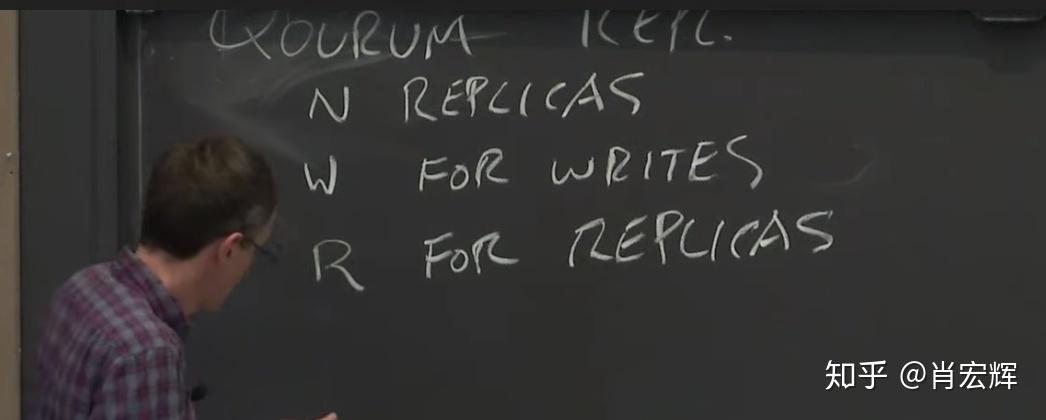 QUORUM REPL.
N REPLICAS
W FOR WRITES
R FOR REPLICAS
知乎 @肖宏辉